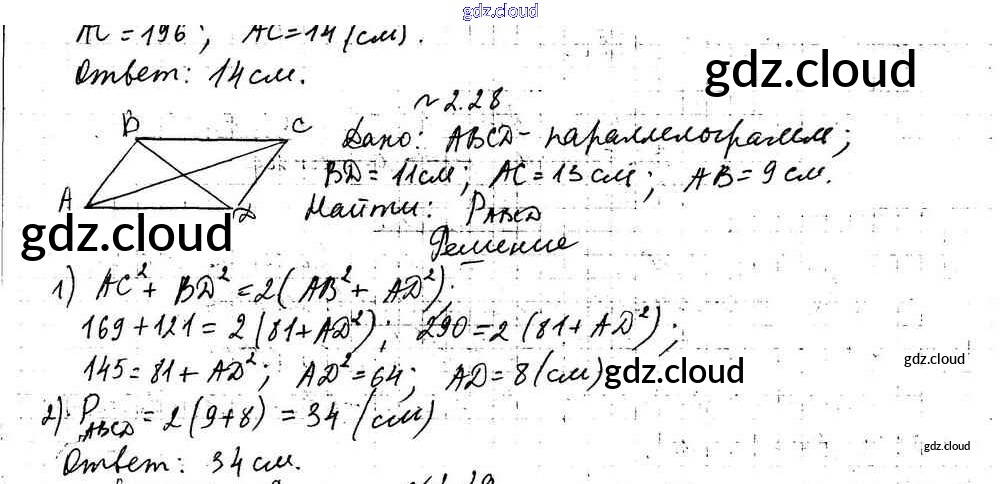 gdz.cloud
AC = 196; AC = 14 (см).
Ответ: 14 см.
gdz.cloud
~ 2.28
B C
Дано: ABCD - параллелограмм;
BD = 11 см; AC = 13 см; AB = 9 см.
A D
Найти: P_ABCD
gdz.cloud
Решение
1) AC² + BD² = 2(AB² + AD²).
169 + 121 = 2(81 + AD²); 290 = 2(81 + AD²);
145 = 81 + AD²; AD² = 64; AD = 8 (см)
gdz.cloud
gdz.cloud
2) P_ABCD = 2(9+8) = 34 (см)
gdz.cloud
Ответ: 34 см.